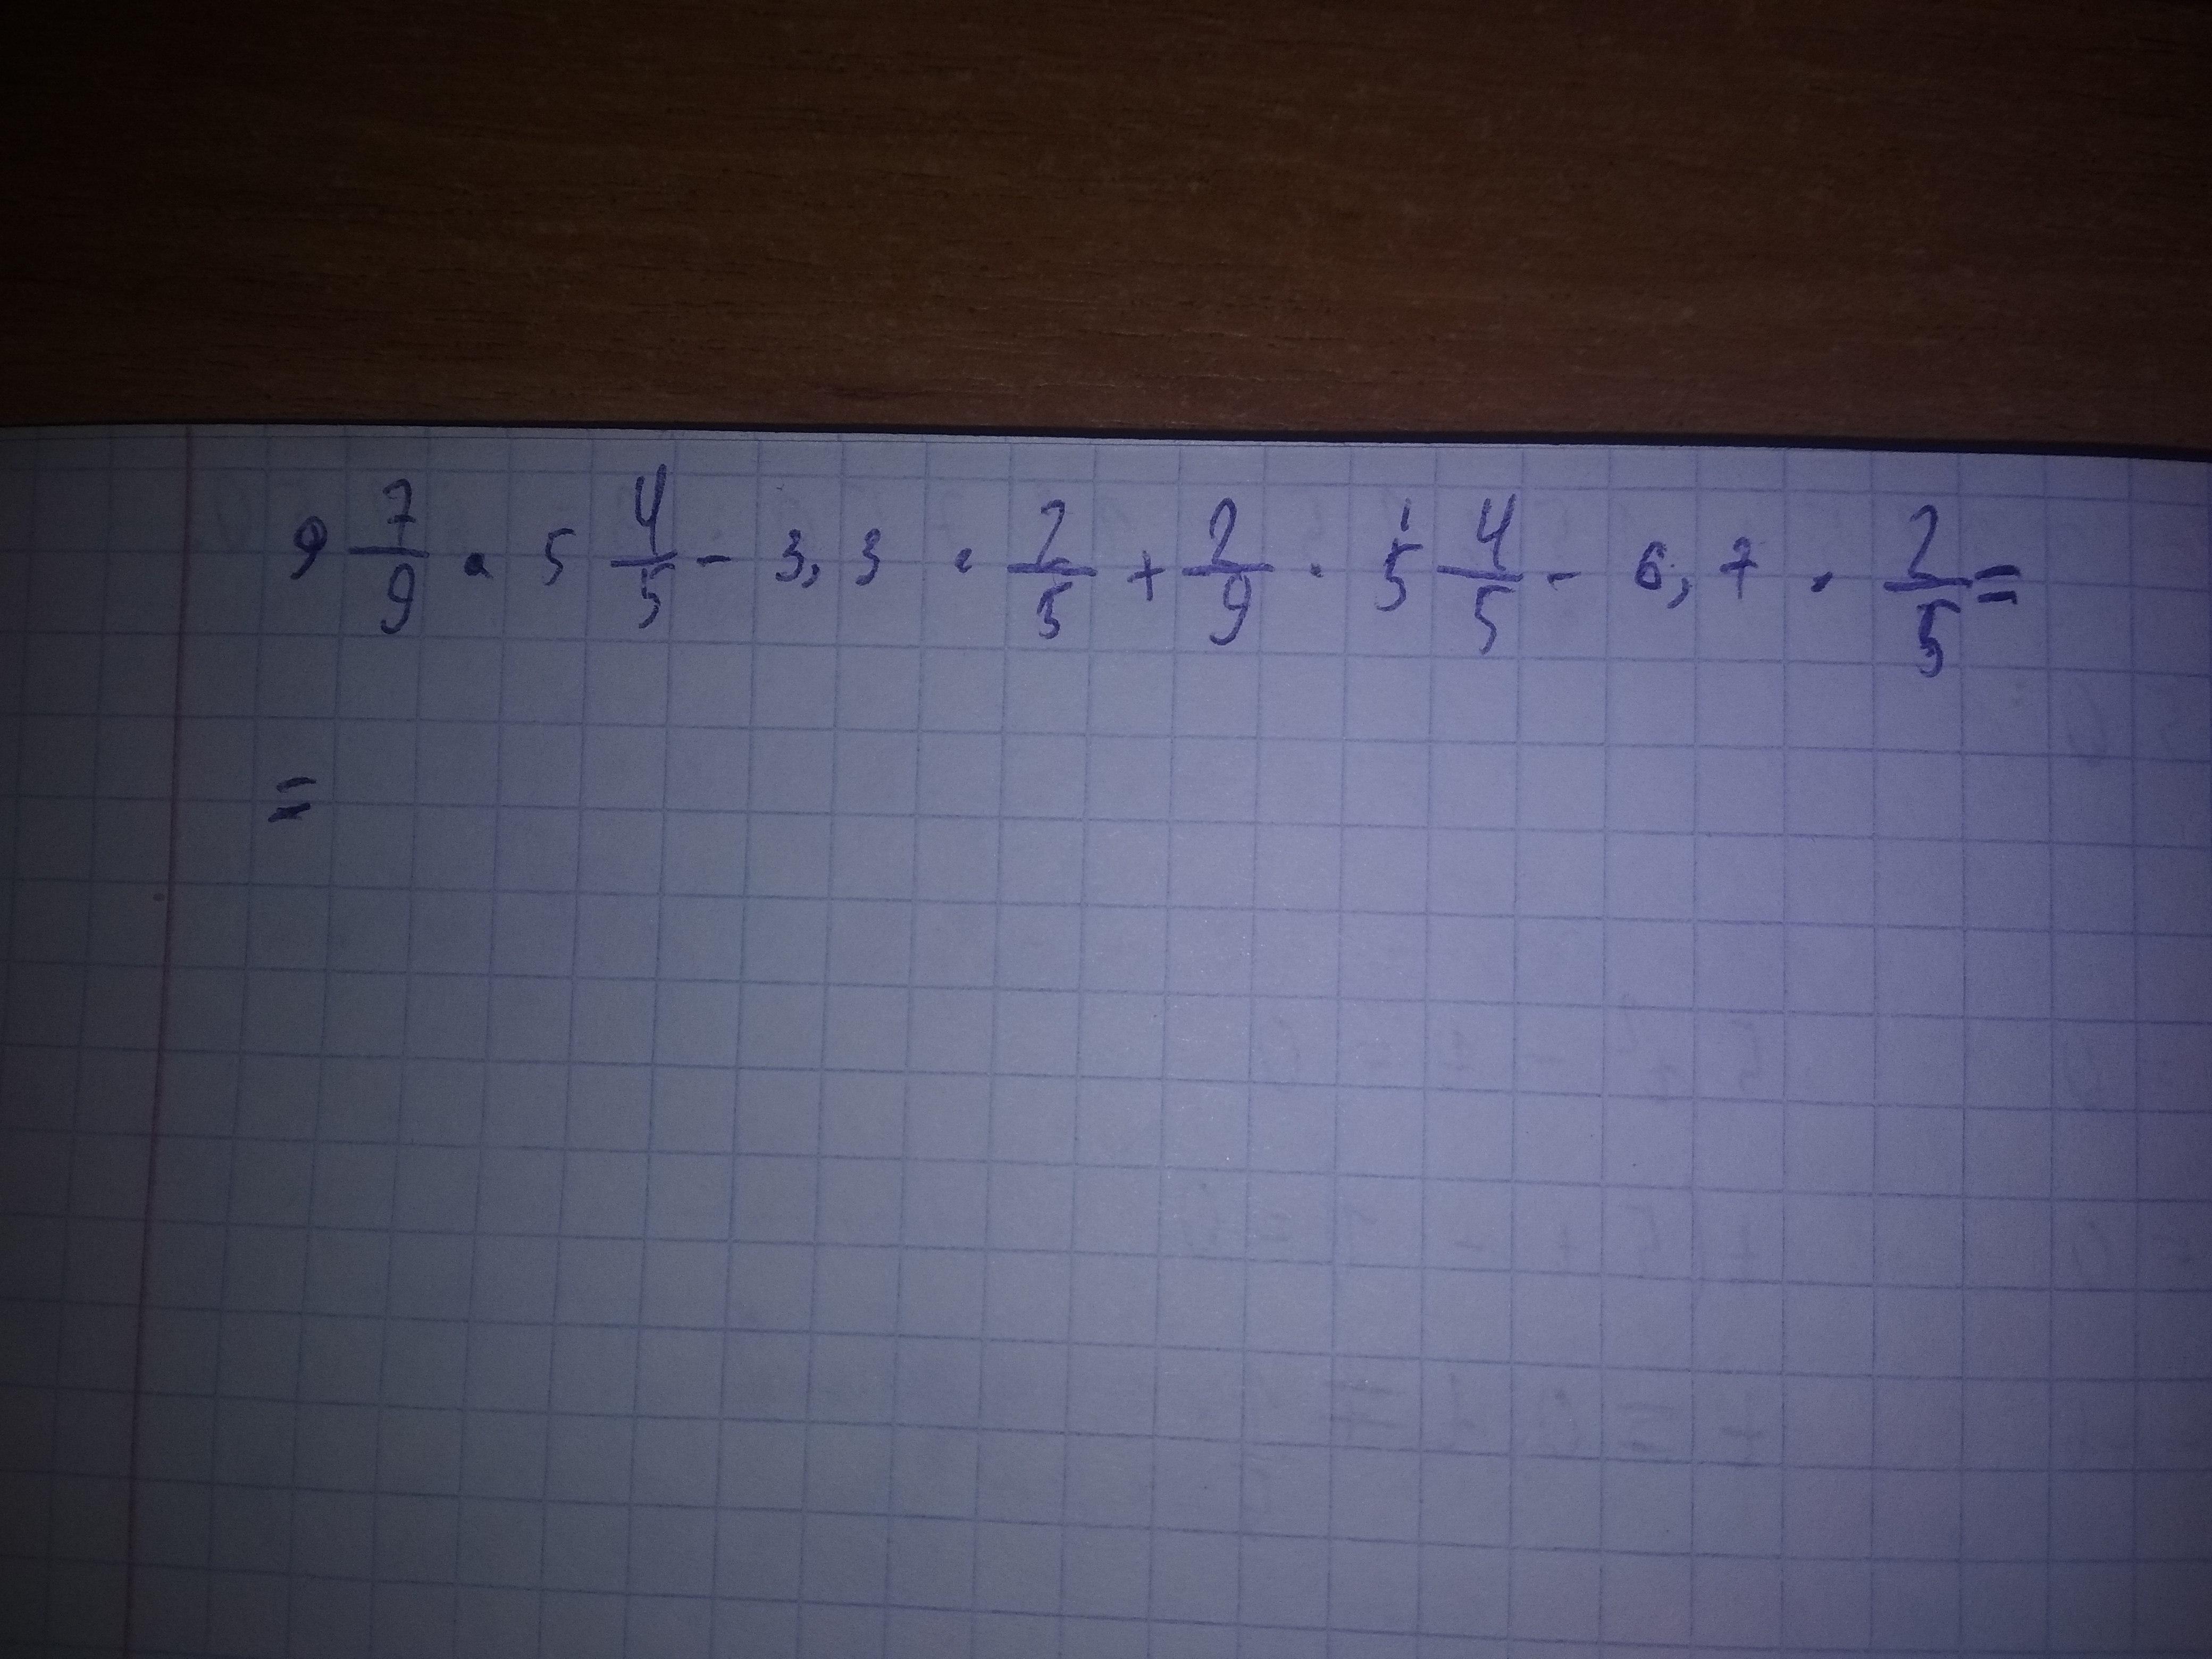 9 7/9 · 5 4/5 - 3,3 · 2/5 + 2/9 · 5 4/5 - 6,7 · 2/5 =
=